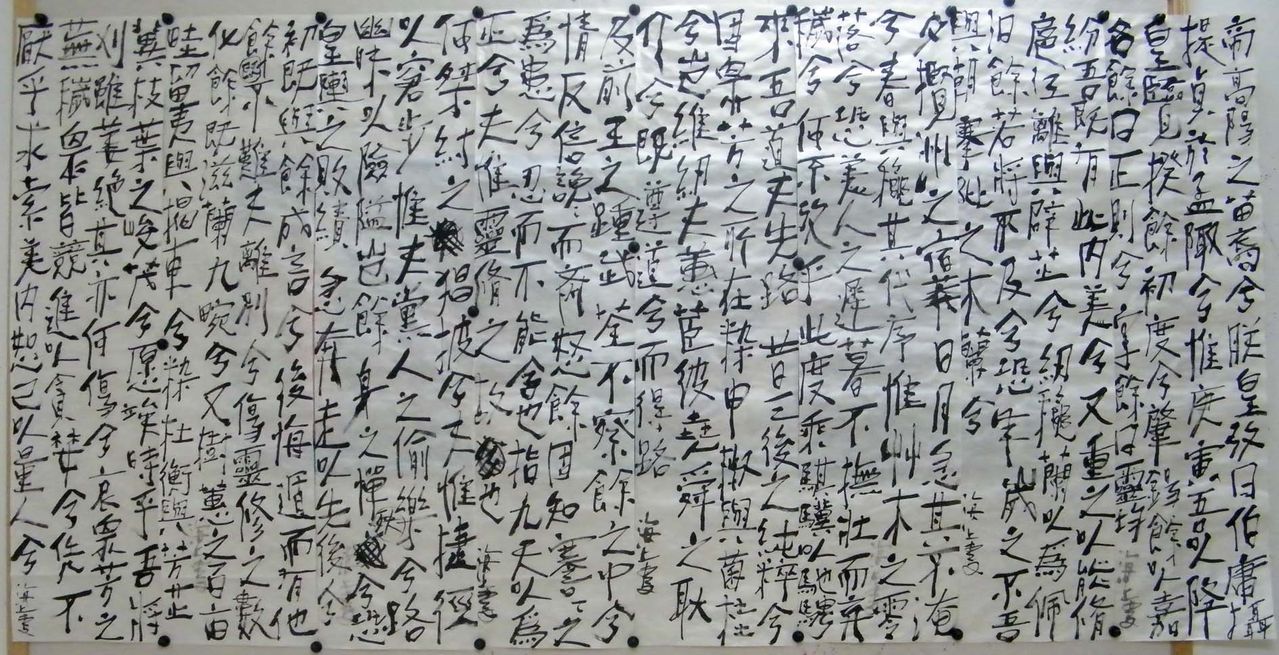 帝高陽之苗裔兮朕皇攷曰伯庸攝
提貞於孟陬兮惟庚寅吾以降
皇覽揆餘初度兮肇錫餘以嘉
名餘曰正則兮字餘曰靈均
紛吾既有此內美兮又重之以能脩
扈江離與辟芷兮紉秋蘭以爲佩
汩餘若將不及兮恐年歲之不吾
與朝搴阰之木蘭兮
夕攬州之宿莽日月忽其不淹
兮春與秋其代序惟艸木之零
落兮恐美人之遲暮不撫壯而棄
穢兮何不改乎此度乘騏驥以馳騁
來吾道夫先路 昔三後之純粹兮
固眾芳之所在雜申椒與菌桂
兮豈維紉夫蕙茝彼堯舜之耿
介兮既遵道兮而得路
及前王之踵武荃不察餘之中兮
情反信讒而齌怒餘固知謇謇之
爲患兮忍而不能舍也指九天以爲
正兮夫惟靈脩之故也
何桀紂之猖披兮夫惟捷徑
以窘步惟夫黨人之偷樂兮路
幽昧以險隘豈餘身之憚殃兮恐
皇輿之敗績 忽奔走以先後兮
初既與餘成言兮後悔遁而有他
餘既不難夫離別兮傷靈修之數
化餘既滋蘭九畹兮又樹蕙之百畝
畦留夷與揭車兮雜杜衡與芳芷
冀枝葉之峻茂兮愿竢時乎吾將
刈雖萎絕其亦何傷兮哀眾芳之
蕪穢眾皆競進以貪婪兮憑不
厭乎求索羌內恕己以量人兮